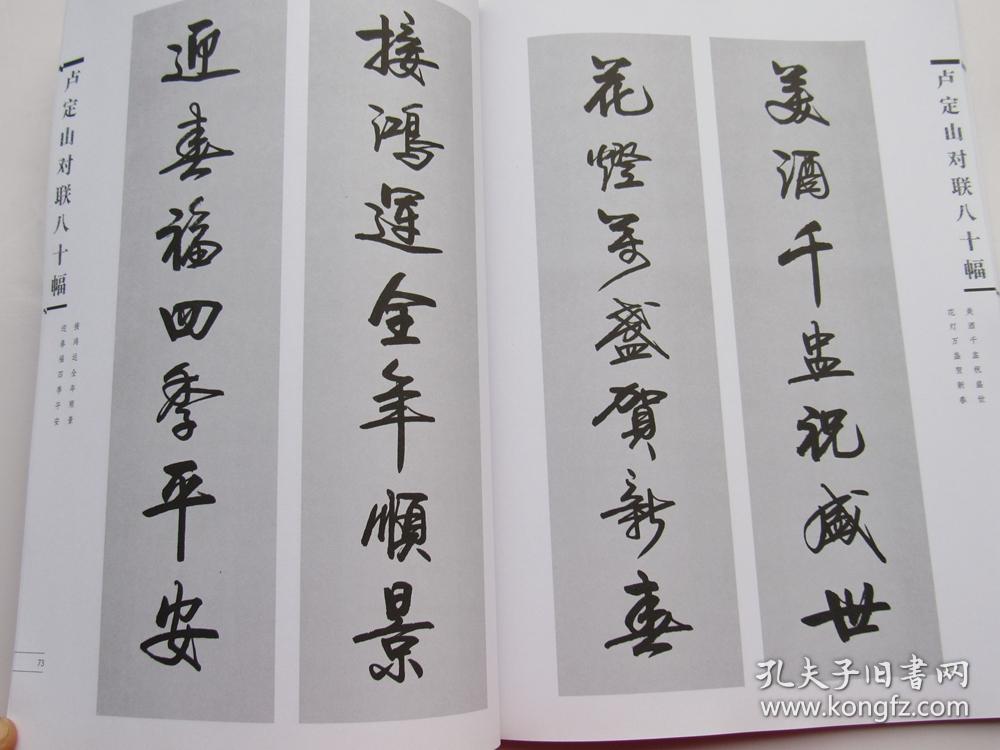 卢定山对联八十幅
美酒千盅祝盛世
花灯万盏贺新春
美酒千盅祝盛世
花燈萬盞賀新春
接鴻運全年順景
迎春福四季平安
卢定山对联八十幅
接鸿运全年顺景
迎春福四季平安
73
孔夫子旧书网
www.kongfz.com